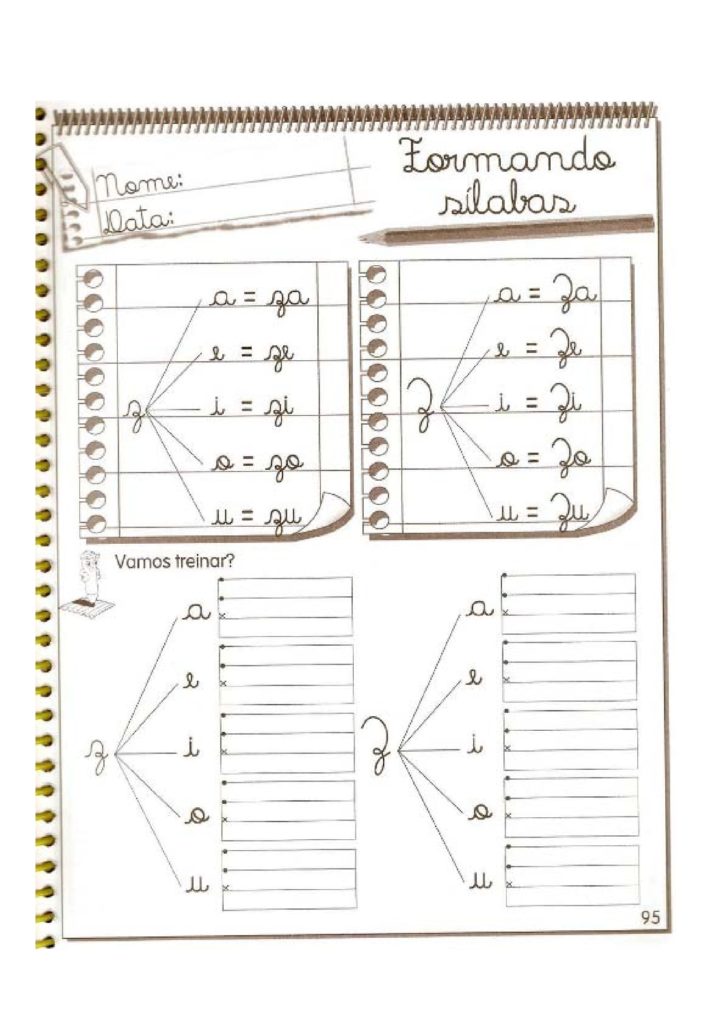 Nome:
Data:
Formando
sílabas
z
a = za
e = ze
i = zi
o = zo
u = zu
Z
a = Za
e = Ze
i = Zi
o = Zo
u = Zu
Vamos treinar?
z
a
e
i
o
u
Z
a
e
i
o
u
95